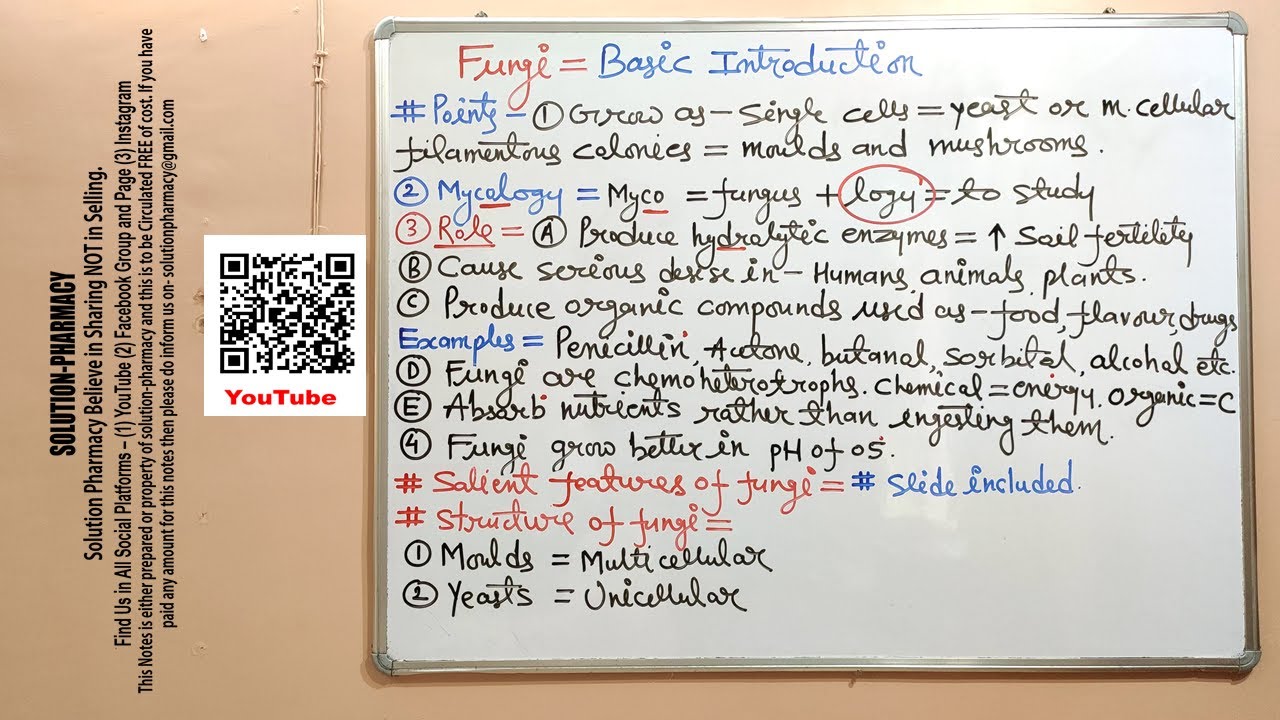 SOLUTION-PHARMACY
Solution Pharmacy Believe in Sharing NOT in Selling.
Find Us in All Social Platforms – (1) YouTube (2) Facebook Group and Page (3) Instagram
This Notes is either prepared or property of solution-pharmacy and this is to be Circulated FREE of cost. If you have
paid any amount for this notes then please do inform us on- solutionpharmacy@gmail.com
YouTube
Fungi = Basic Introduction
# Points – ① Grow as – Single cells = yeast or m.cellular
filamentous colonies = moulds and mushrooms.
② Mycology = Myco = fungus + logy = to study
③ Role = Ⓐ Produce hydrolytic enzymes = ↑ Soil fertility
Ⓑ Cause serious desise in – Humans, animals, plants.
Ⓒ Produce organic compounds used as – food, flavour, drugs
Examples = Penicillin, Acetone, butanal, sorbital, alcohal etc.
Ⓓ Fungi are chemoheterotrophs. Chemical = energy. Organic = C
Ⓔ Absorb nutrients rather than ingesting them.
④ Fungi grow better in pH of 05.
# Salient features of fungi = # Slide included.
# Structure of fungi =
① Moulds = Multicellular
② Yeasts = Unicellular